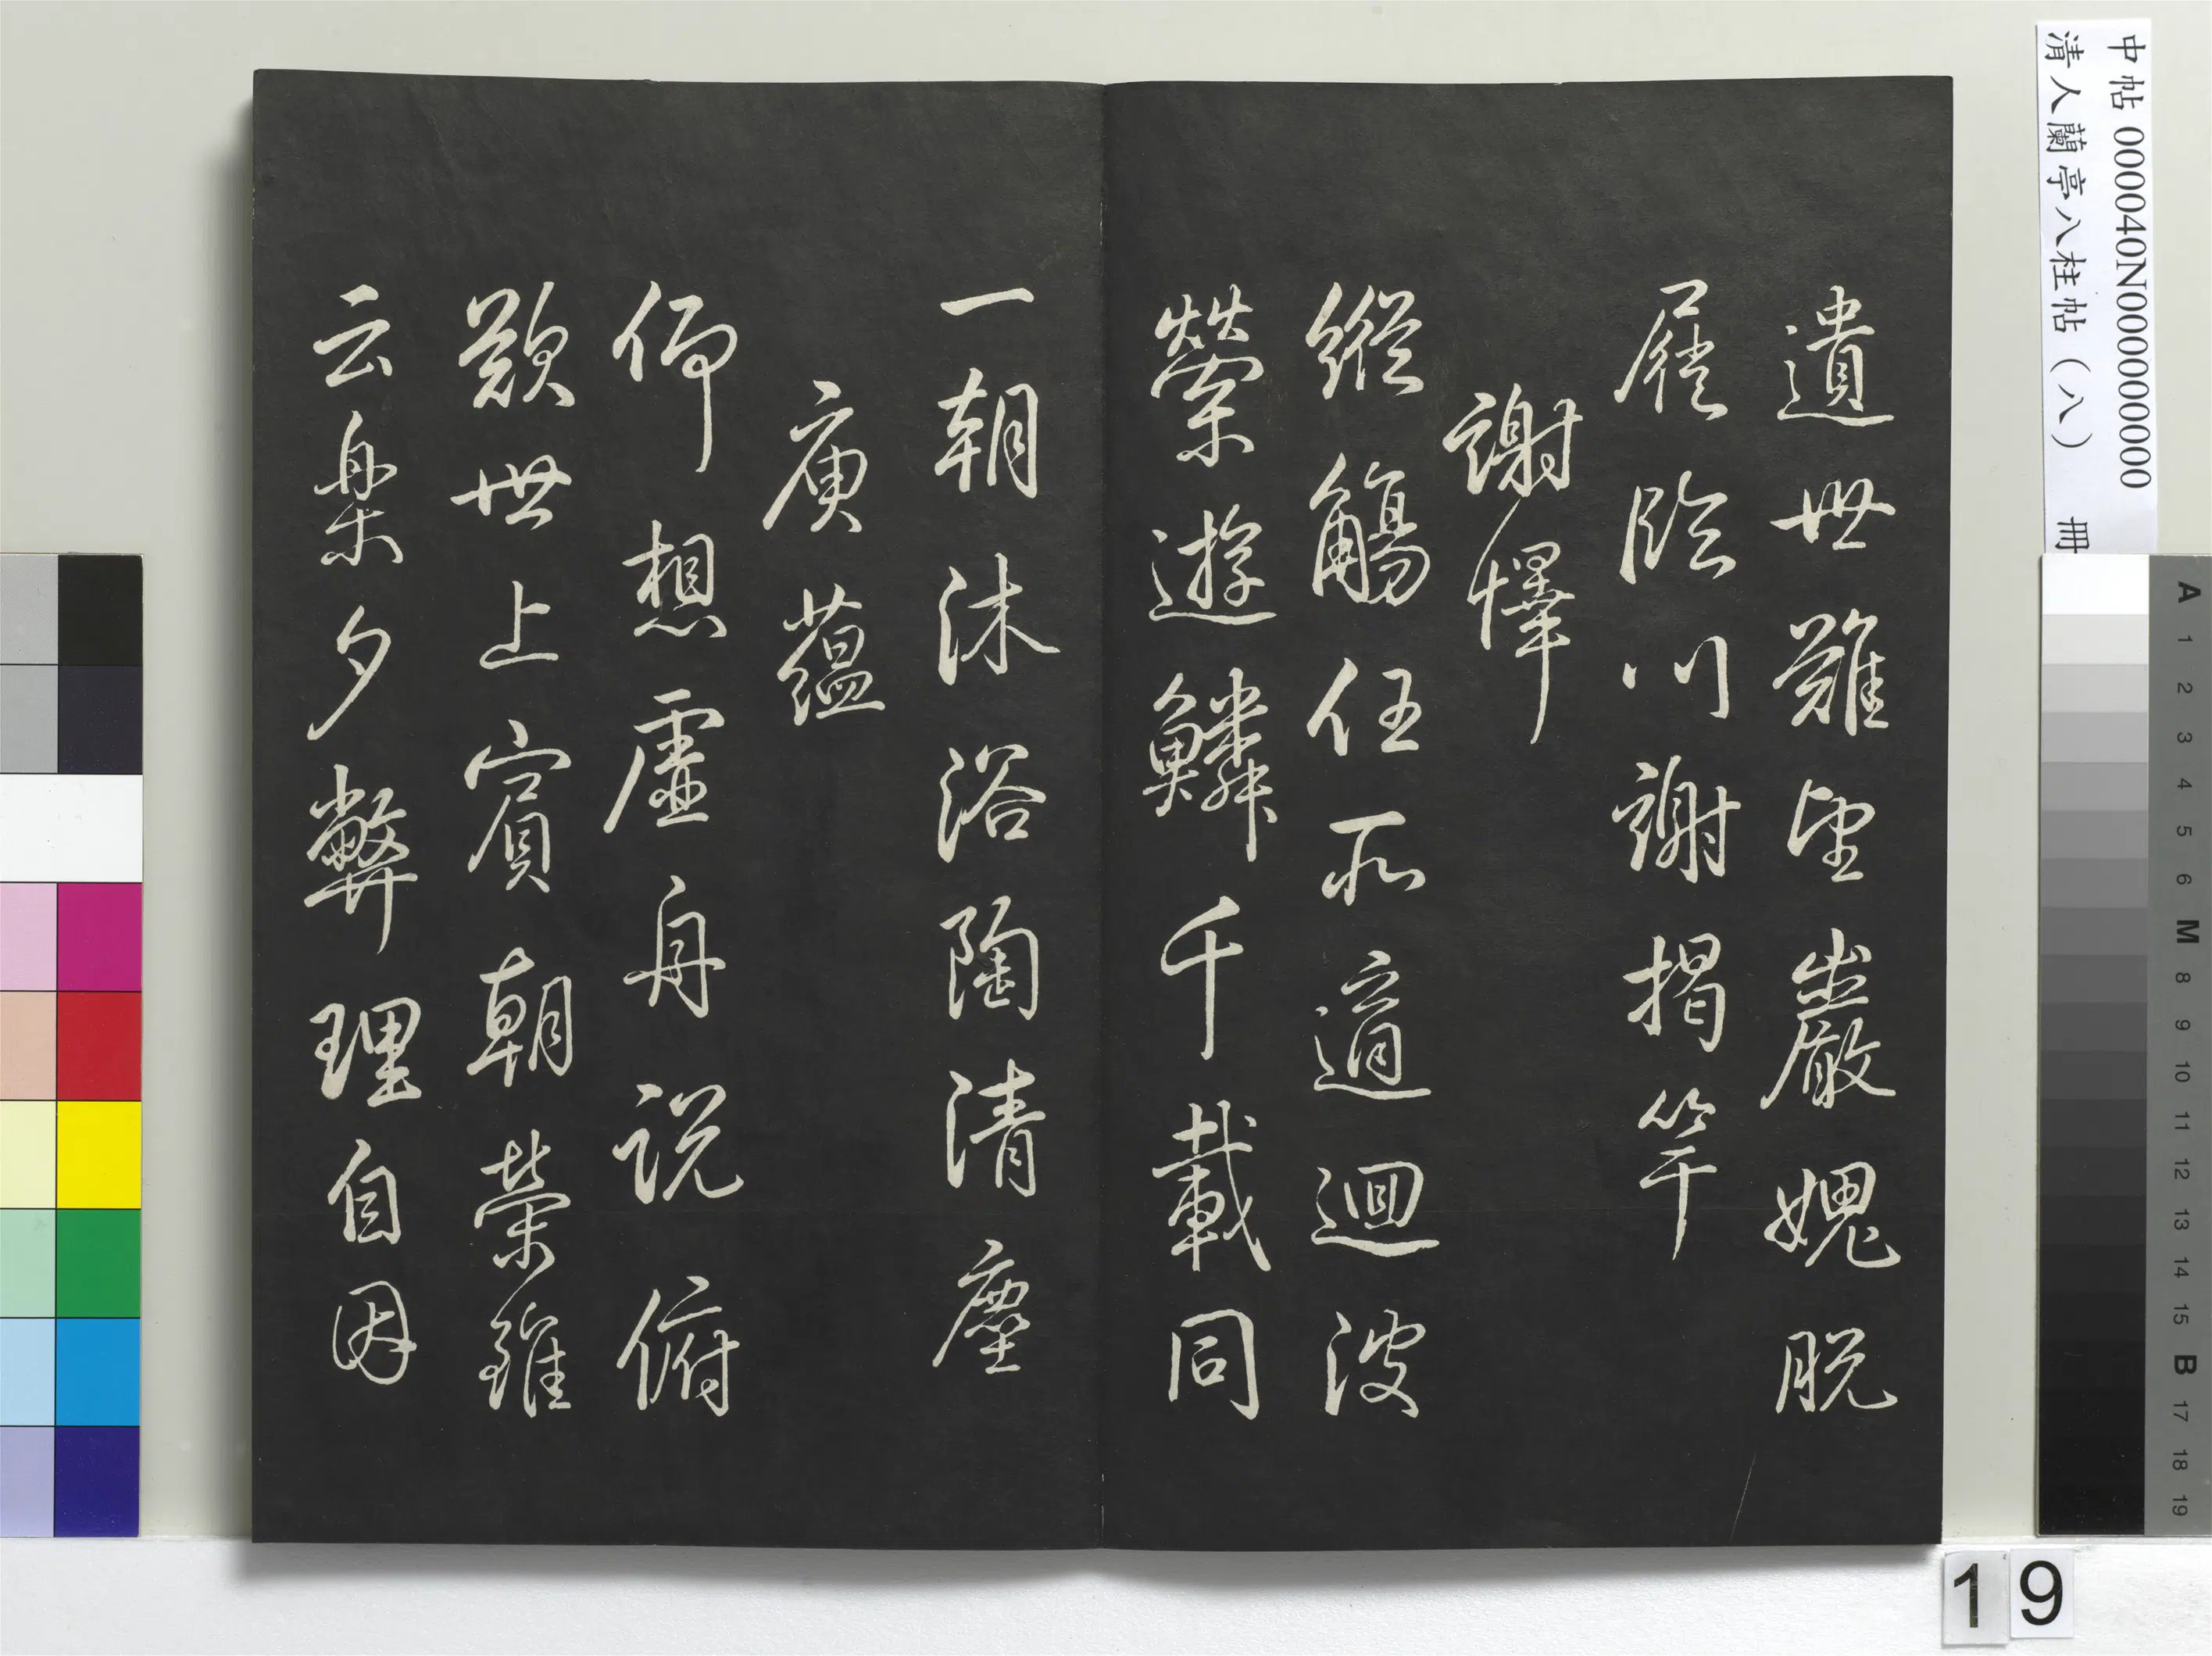 遺世難望巖媿脫
屣臨川謝揭竿
謝懌
縱觴任所適迴波
縈遊鱗千載同
一朝沐浴陶清塵
庾蘊
仰想虛舟說俯
歎世上賓朝榮雖
云樂夕弊理自因
中帖 000040N000000000
清人蘭亭八柱帖(八) 冊
A 1 2 3 4 5 6 M 8 9 10 11 12 13 14 15 B 17 18 19
19